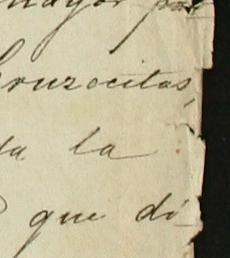 mayor por
Cruzecitas,
da la
que di-